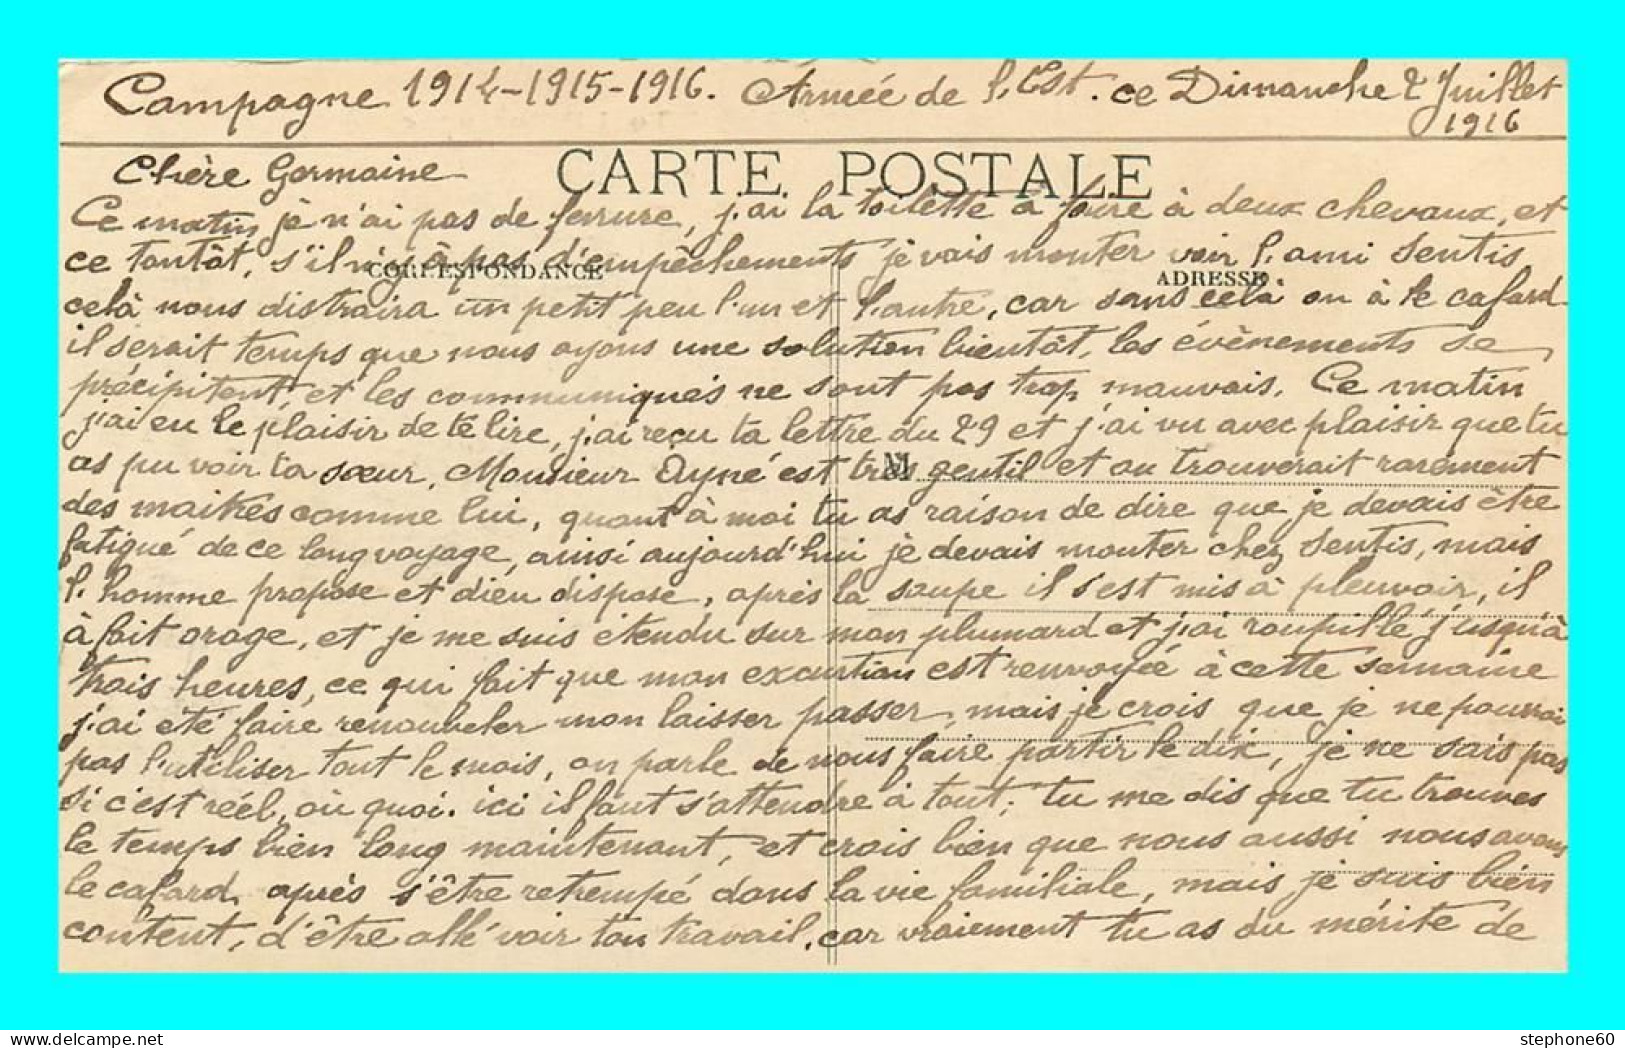 Campagne 1914-1915-1916. Armée de l'Est. ce Dimanche 2 Juillet
1916
CARTE POSTALE
Chère Germaine
Ce matin je n'ai pas de ferrure, j'ai la toilette à faire à deux chevaux, et
ce tantôt, s'il n'y à pas d'empêchements je vais monter voir l'ami Sentis
CORRESPONDANCE
ADRESSE
celà nous distraira un petit peu l'un et l'autre, car sans celà on à le cafard
il serait temps que nous ayons une solution bientôt, les évènements se
précipitent et les communiqués ne sont pas trop mauvais. Ce matin
j'ai eu le plaisir de te lire, j'ai reçu ta lettre du 29 et j'ai vu avec plaisir que tu
as pu voir ta sœur, Monsieur Ayné est très gentil et on trouverait rarement
M
des maitres comme lui, quant à moi tu as raison de dire que je devais être
fatigué de ce long voyage, ainsi aujourd'hui je devais monter chez Sentis, mais
l'homme propose et dieu dispose, après la soupe il s'est mis à pleuvoir, il
à fait orage, et je me suis étendu sur mon plumard et j'ai roupillé jusqu'à
trois heures, ce qui fait que mon excurtion est renvoyée à cette semaine
j'ai été faire renouveler mon laisser passer, mais je crois que je ne pourrai
pas l'utiliser tout le mois, on parle de nous faire partir le dix, je ne sais pas
si c'est réel, où quoi. ici il faut s'attendre à tout. tu me dis que tu trouves
le temps bien long maintenant, et crois bien que nous aussi nous avons
le cafard après s'être retrempé dans la vie familiale, mais je suis bien
content, d'être allé voir ton travail, car vraiement tu as du mérite de
stephone60